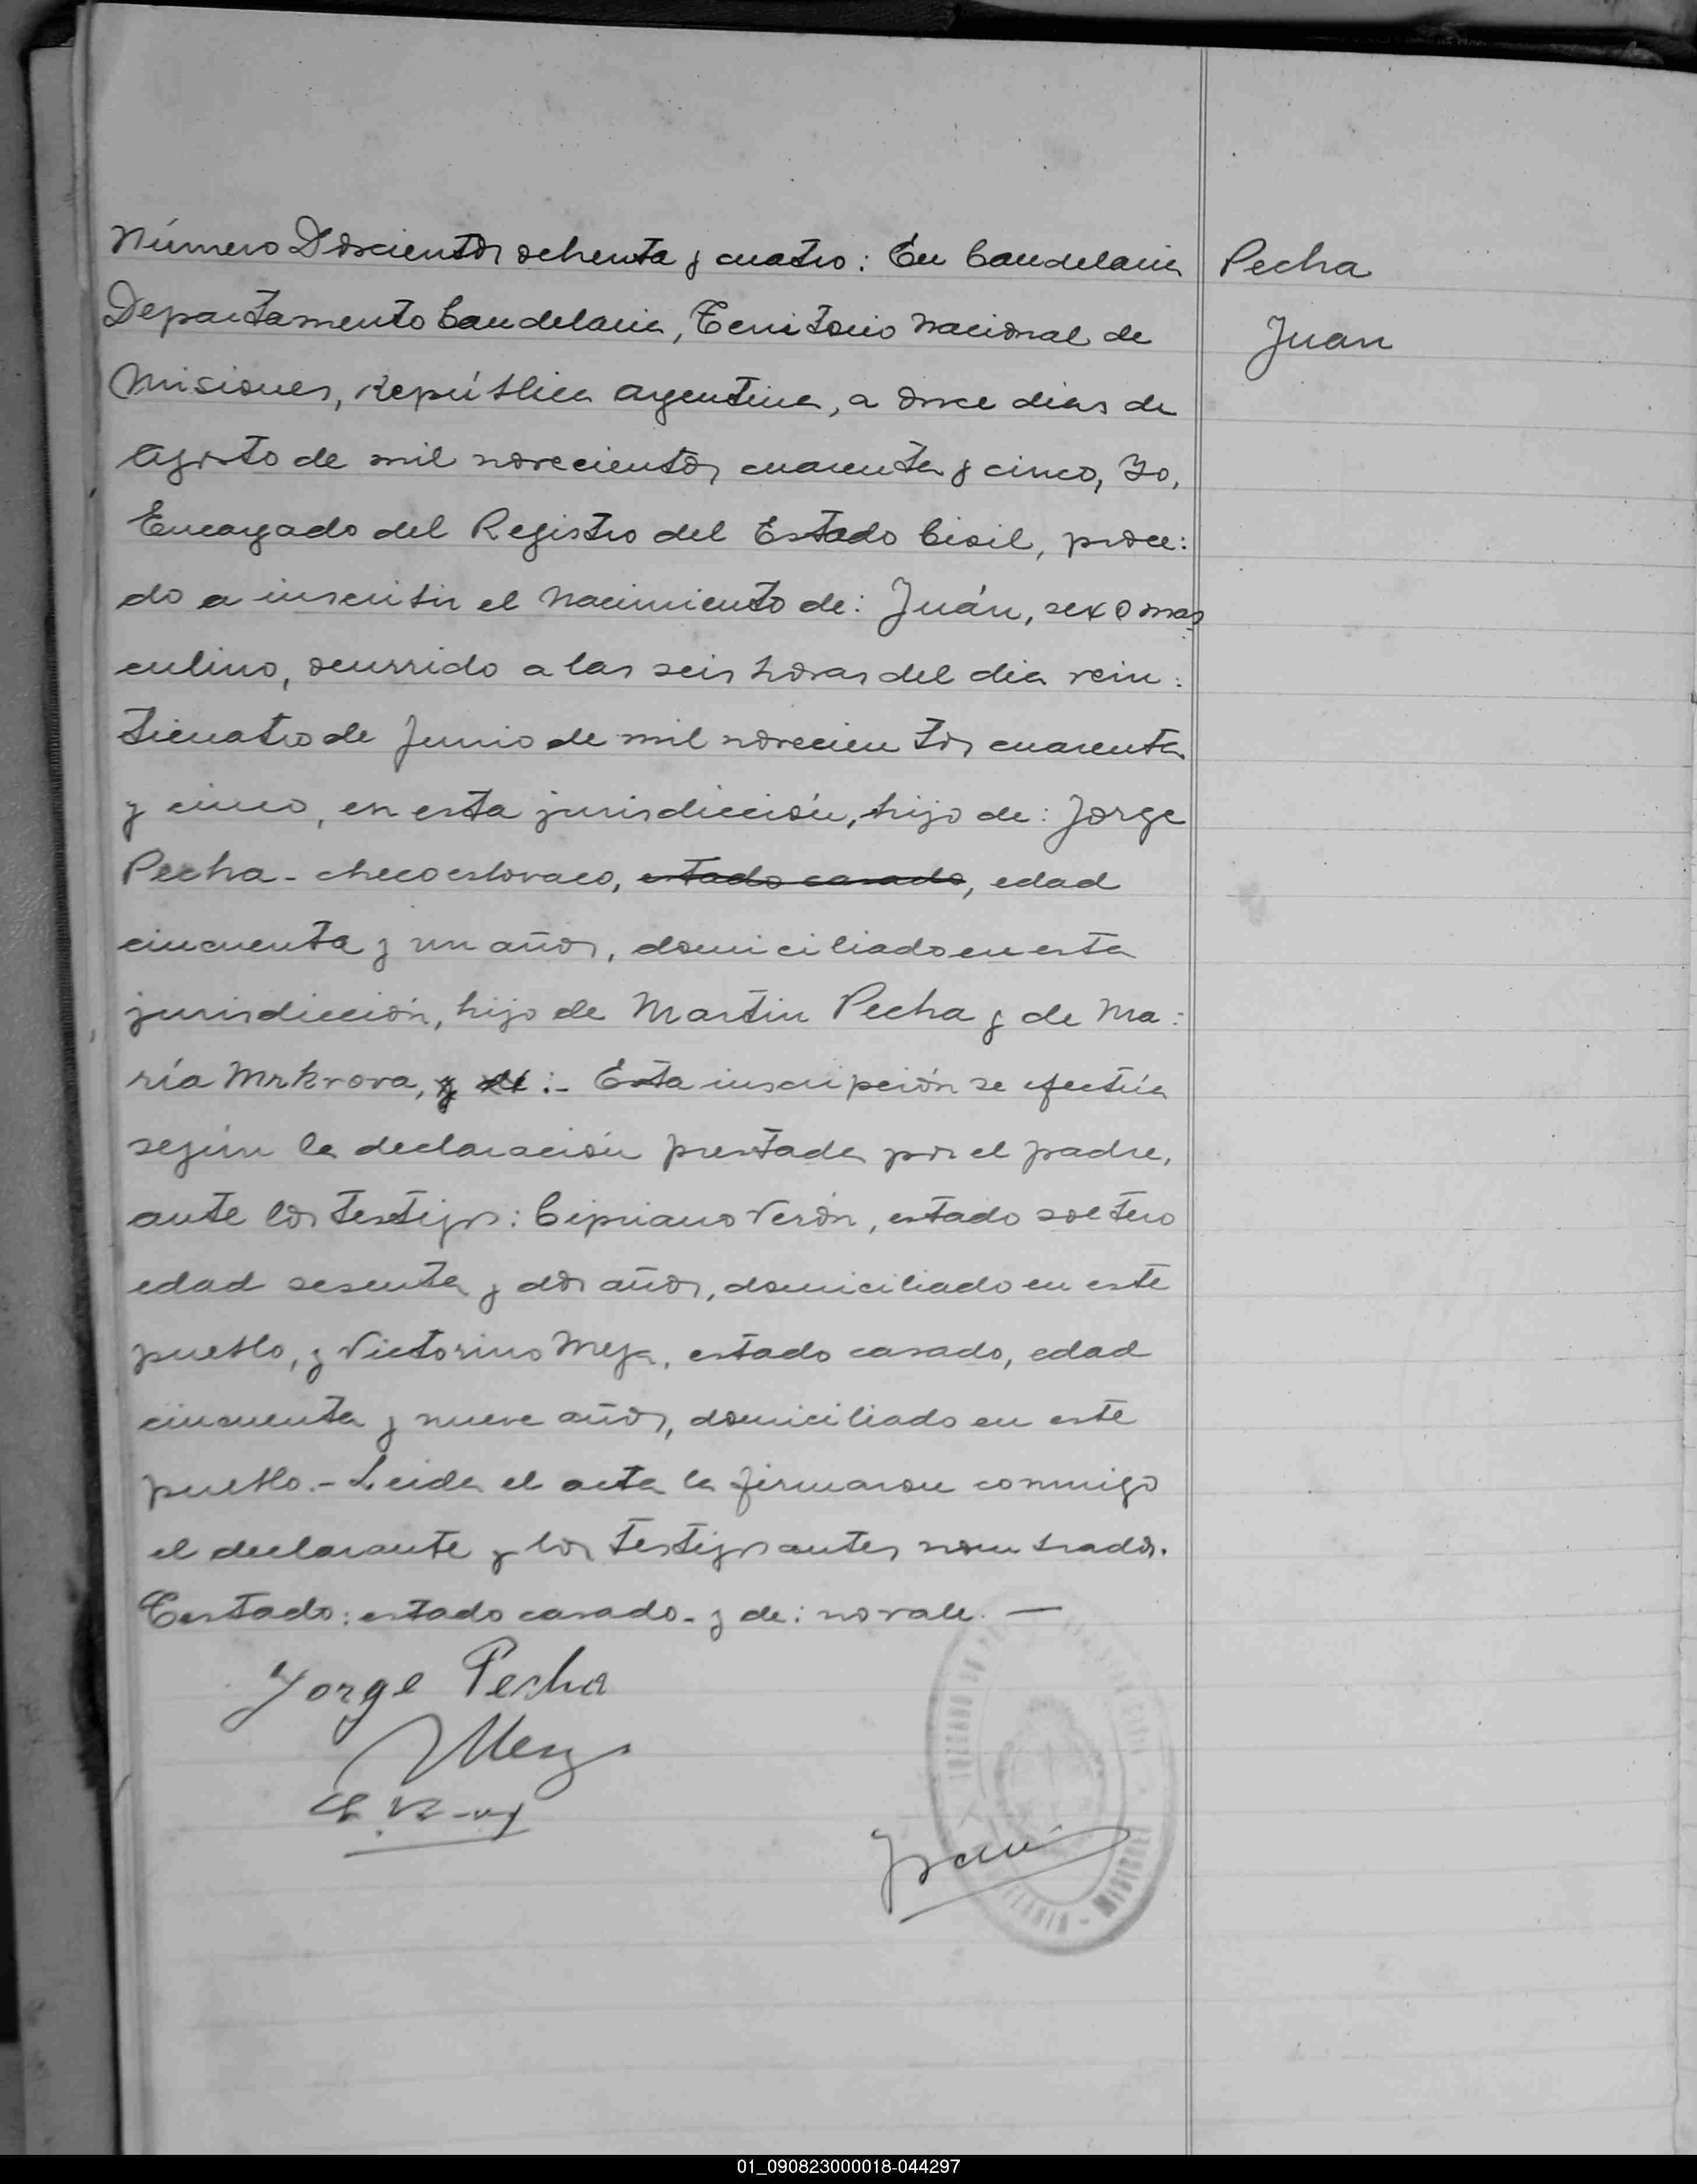 Número Doscientos ochenta y cuatro: En Candelaria
Pecha
Juan
Departamento Candelaria, Territorio Nacional de
Misiones, República Argentina, a once dias de
Agosto de mil novecientos cuarenta y cinco, Yo,
Encargado del Registro del Estado Civil, proce:
do a inscribir el nacimiento de: Juán, sexo mas
culino, ocurrido a las seis horas del dia vein:
ticuatro de Junio de mil novecientos cuarenta
y cinco, en esta jurisdicción, hijo de: Jorge
Pecha - checoeslovaco, estado casado, edad
cincuenta y un años, domiciliado en esta
jurisdicción, hijo de Martin Pecha y de Ma:
ría Mrkvova, y de :- Esta inscripción se efectúa
según la declaración prestada por el padre,
ante los testigos: Cipriano Verón, estado soltero
edad sesenta y dos años, domiciliado en este
pueblo, y Victorino Meza, estado casado, edad
cincuenta y nueve años, domiciliado en este
pueblo.- Leida el acta la firmaron conmigo
el declarante y los testigos antes nombrados.
Testado: estado casado - y de: no vale. —
Jorge Pecha
Meza
MISIONES
01_090823000018-044297